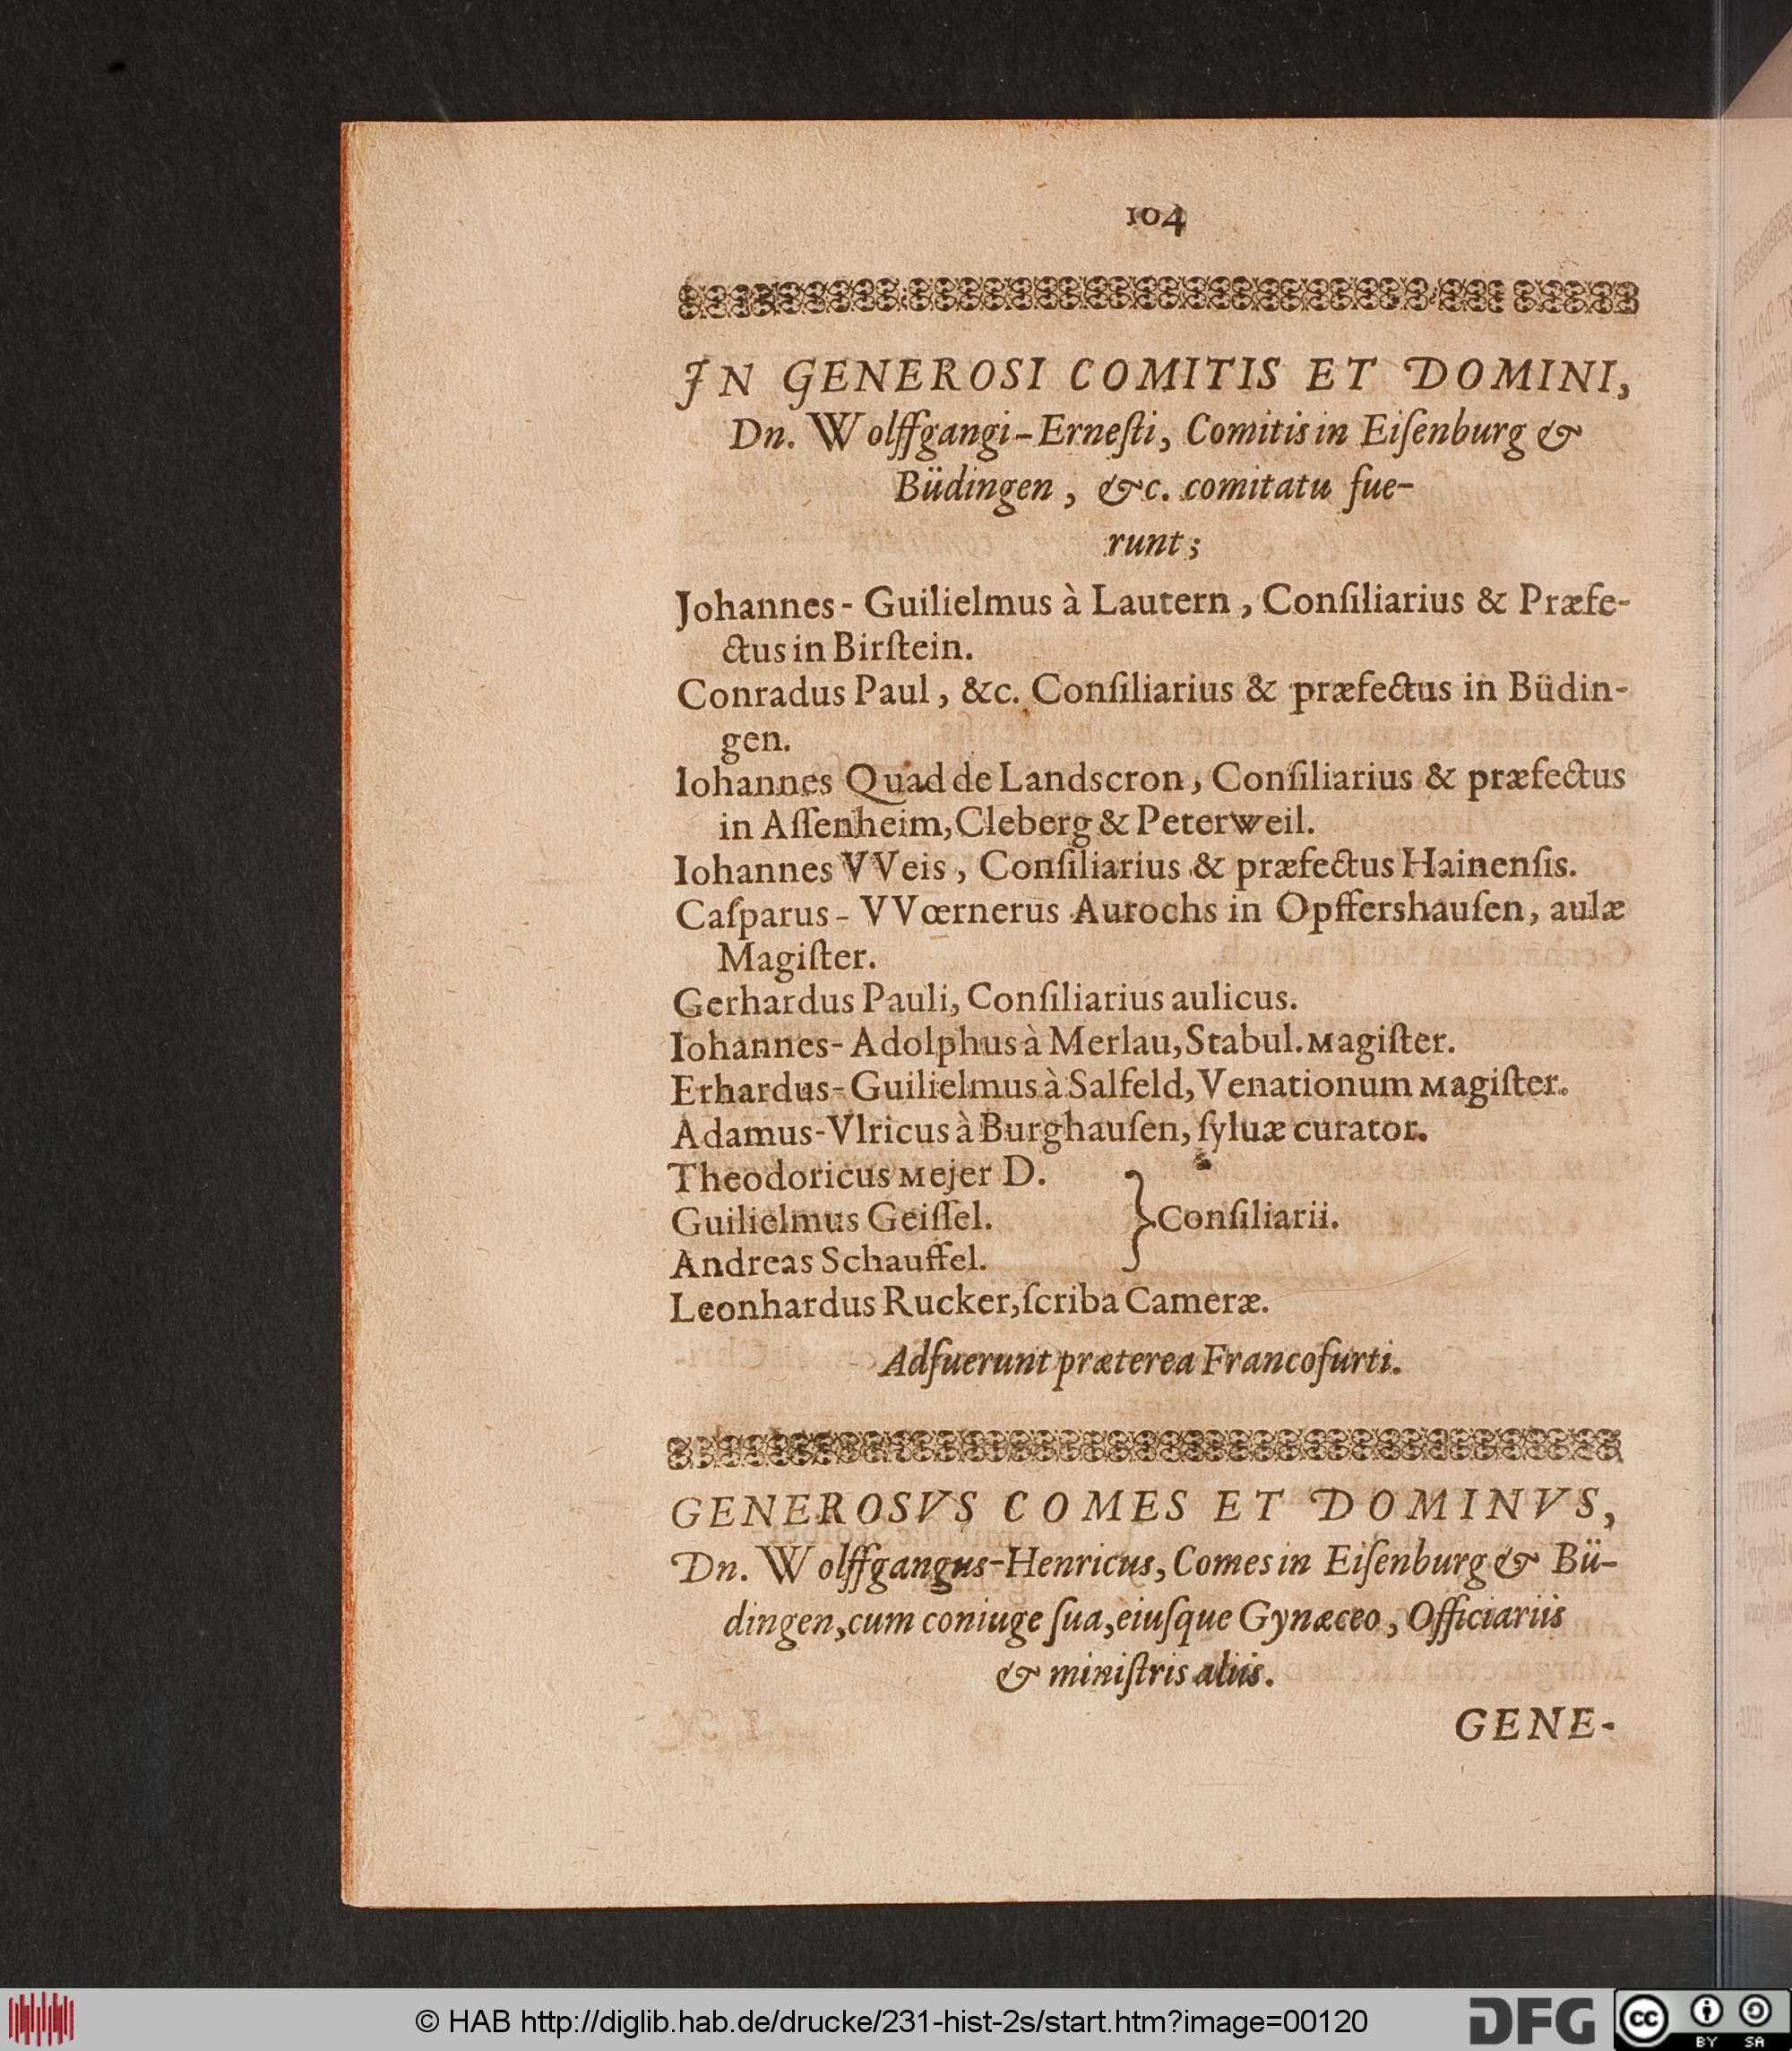 104
IN GENEROSI COMITIS ET DOMINI,
Dn. Wolffgangi-Erneſti, Comitis in Eiſenburg &
Büdingen, &c. comitatu fue-
runt;
Johannes-Guilielmus à Lautern, Conſiliarius & Præfe-
ctus in Birſtein.
Conradus Paul, &c. Conſiliarius & præfectus in Büdin-
gen.
Iohannes Quad de Landscron, Conſiliarius & præfectus
in Aſſenheim, Cleberg & Peterweil.
Iohannes VVeis, Conſiliarius & præfectus Hainenſis.
Caſparus-VVœrnerus Aurochs in Opffershauſen, aulæ
Magiſter.
Gerhardus Pauli, Conſiliarius aulicus.
Iohannes-Adolphus à Merlau, Stabul. Magiſter.
Erhardus-Guilielmus à Salfeld, Venationum Magiſter.
Adamus-Vlricus à Burghauſen, ſyluæ curator.
Theodoricus Mejer D.
Guilielmus Geiſſel. } Conſiliarii.
Andreas Schauffel.
Leonhardus Rucker, ſcriba Cameræ.
Adfuerunt præterea Francofurti.
GENEROSVS COMES ET DOMINVS,
Dn. Wolffgangus-Henricus, Comes in Eiſenburg & Bü-
dingen, cum coniuge ſua, eiuſque Gynæceo, Officiariis
& miniſtris aliis.
GENE-
© HAB http://diglib.hab.de/drucke/231-hist-2s/start.htm?image=00120
DFG
cc BY SA